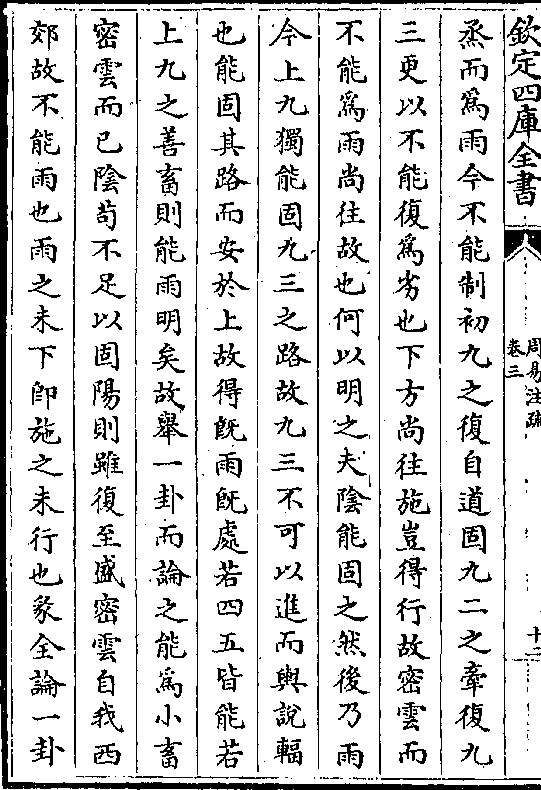 欽定四庫全書
周易注疏
卷三
十二
烝而爲雨今不能制初九之復自道固九二之牽復九
三更以不能復爲劣也下方尚往施豈得行故密雲而
不能爲雨尚往故也何以明之夫陰能固之然後乃雨
今上九獨能固九三之路故九三不可以進而輿說輻
也能固其路而安於上故得旣雨旣處若四五皆能若
上九之善畜則能雨明矣故舉一卦而論之能爲小畜
密雲而已陰苟不足以固陽則雖復至盛密雲自我西
郊故不能雨也雨之未下卽施之未行也彖全論一卦